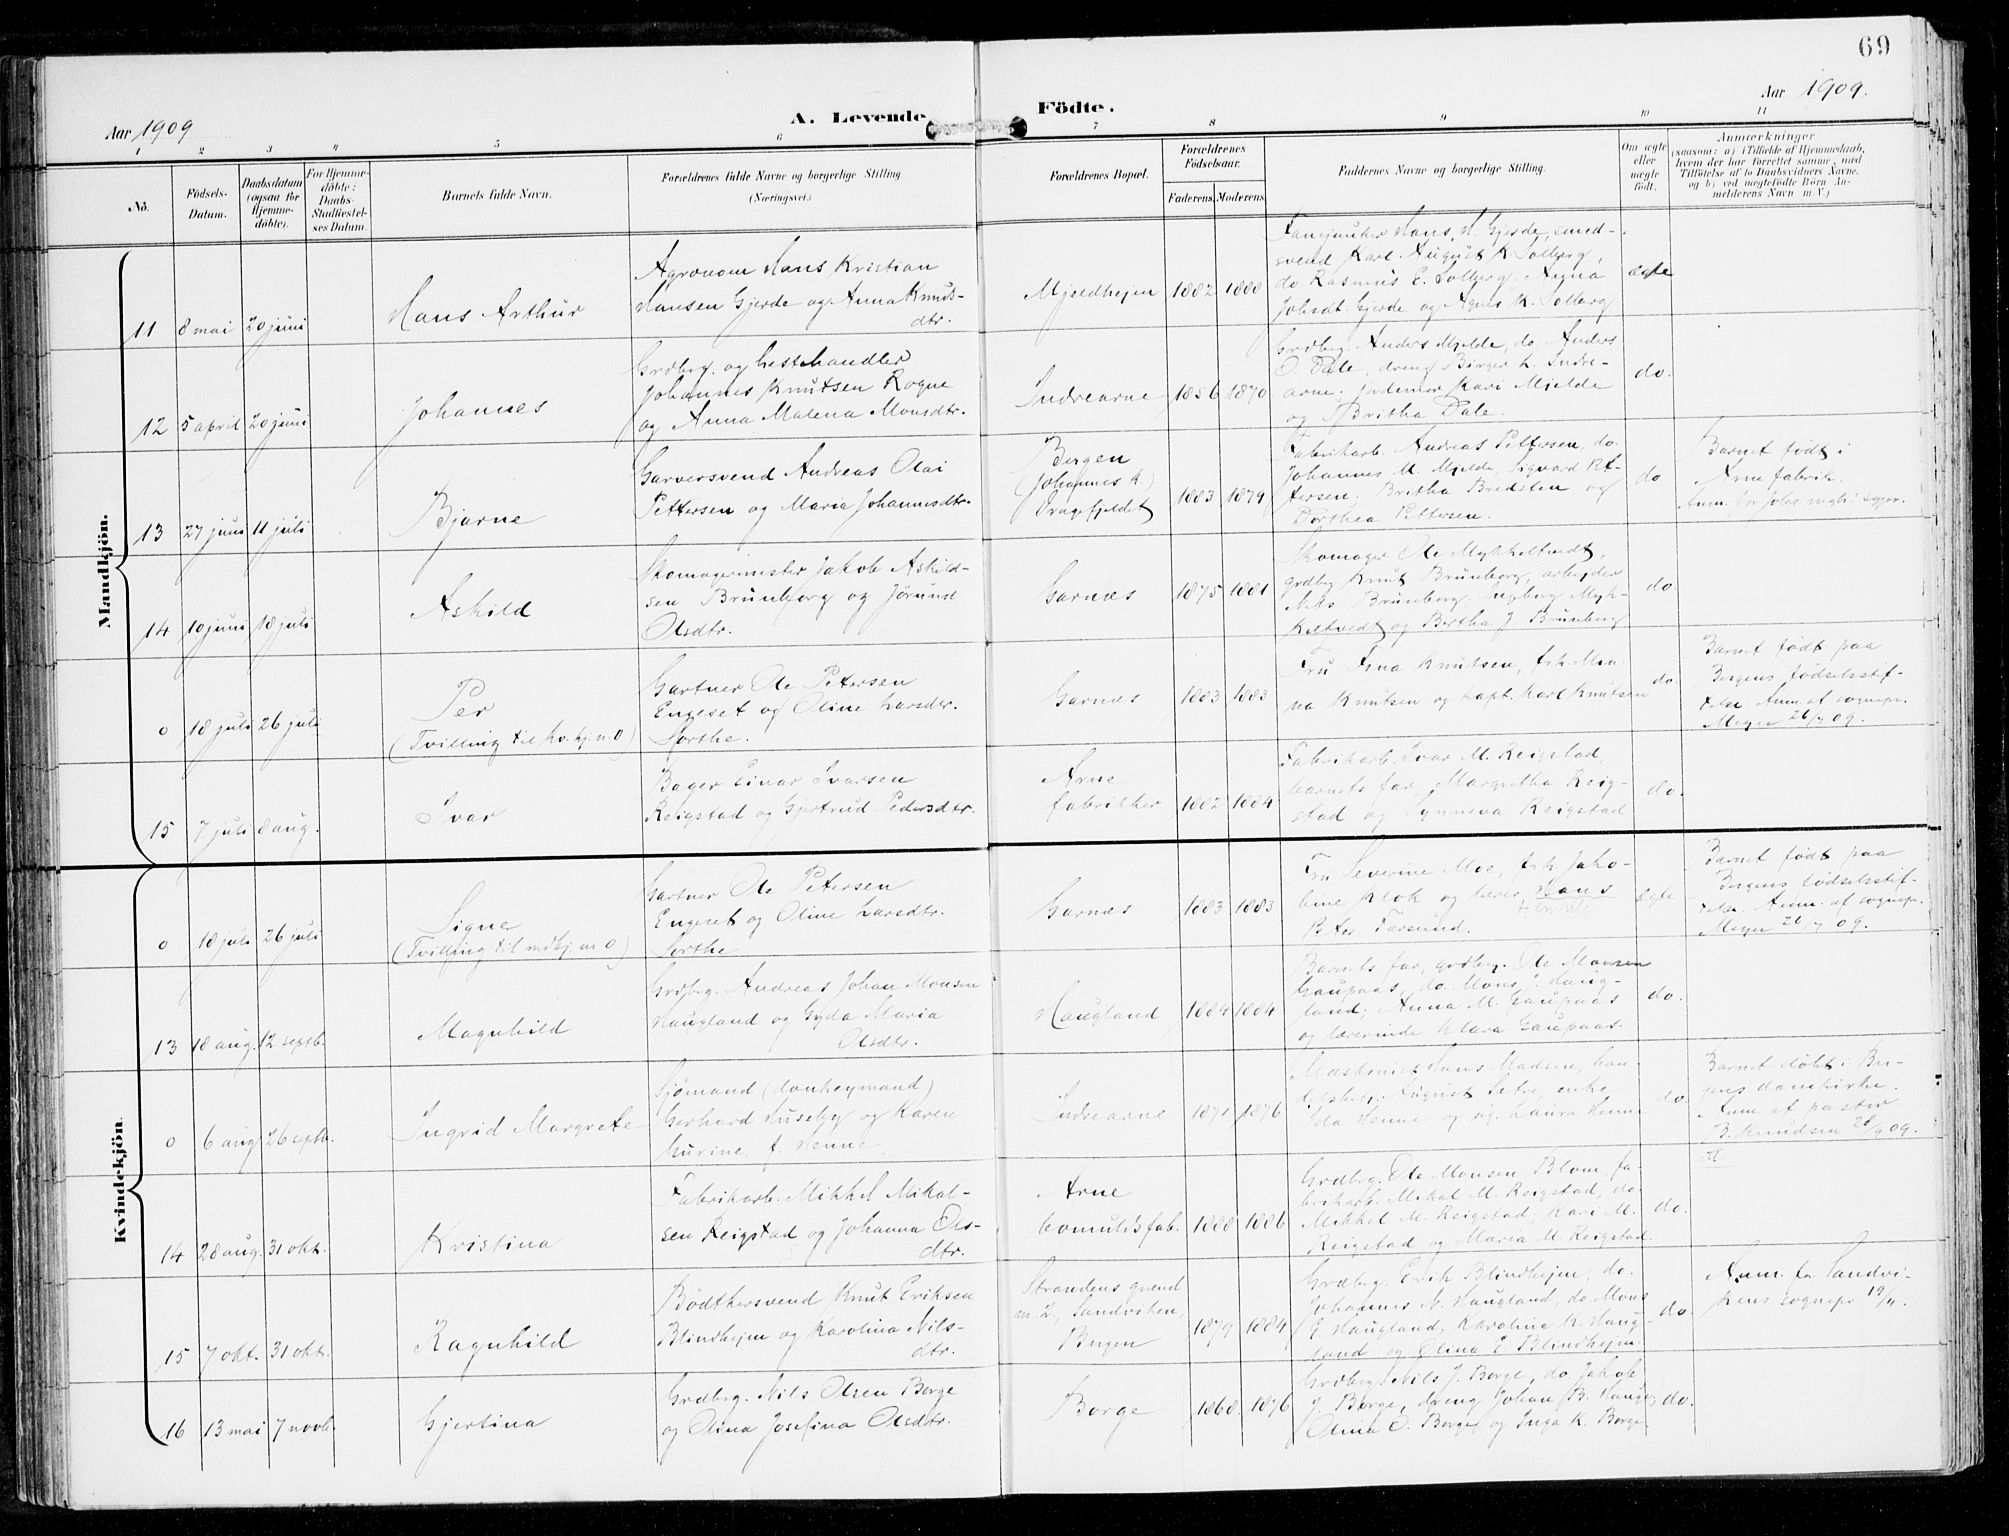 69
Aar 1909
A. Levende Födte.
Aar 1909.
1 2 3 4 5 6 7 8 9 10 11
No.
Födsels-Datum.
Daabsdatum (ogsaa for Hjemme-döbte).
For Hjemme-döbte: Daabs-Stadfæstel-ses Datum.
Barnets fulde Navn.
Forældrenes fulde Navne og borgerlige Stilling
(Næringsvei.)
Forældrenes Bopæl.
Forældrenes Födselsaar.
Faderens. Moderens.
Faddernes Navne og borgerlige Stilling.
Om ægte eller uægte födt.
Anmærkninger
(saasom: a) i Tilfælde af Hjemmedaab,
hvem der har forrettet samme, med
Tilföielse af to Daabsvidners Navne,
og b) ved uægtefödte Börn An-
melderens Navn m. V.)
Mandkjön.
11 8 mai 20 juni
Hans Arthur
Agronom Hans Kristian
Hansen Gjerde og Anna Knus-
dtr.
Mjeldhejen
1882 1888
Fanejunker Hans H. Gjerde, smed-
svend Karl August K. Solberg,
do Rasmus E. Solberg. Anna
Johsdt. Gjerde og Agnes K. Solberg
ægte
12 5 april 20 juni
Johannes
Grdbrg. og hestehandler
Johannes Knutsen Rogne
og Anna Malena Monsdtr.
Indrearne
1856 1870
Grdbrg. Anders Mjelde, do. Anders
O Dale, dreng Birger L. Indre-
arne. Jordemor Kari Mjelde
og Britha Dale.
do.
13 27 juni 11 juli
Bjarne
Garversvend Andreas Olai
Pettersen og Maria Johannesdtr.
Bergen
(Johannes k.)
Dragefjeldet
1883 1879
Fabrikarb. Andreas Pettersen, do.
Johannes M. Mjelde, Sigvard Pet-
tersen. Britha Bredsten og
Dorthea Pettersen.
do
Barnet født i
Arne fabrik.
14 10 juni 18 juli
Askild
Skomagermester Jakob Askild-
sen Brunborg og Jørund
Olsdtr.
Garnæs
1875 1881
Skomager Ole Mykkeltvedt,
grdbrg. Knut Brunborg, arbejder
Nils Brunborg. Ingborg Myk-
keltvedt og Bertha J. Brunborg
do.
0 18 juli 26 juli
Per
(Tvilling til kv.kj. n. 0)
Gartner Ole Petersen
Engeset og Oline Larsdtr.
Garnæs
1883 1883
Fru Fina Knutsen, frk. Min-
na Knutsen og kapt. Karl Knutsen
do.
Barnet født paa
Bergens fødselsstif-
telse. Anm. af sognepr.
Meyer 26/7 09.
15 7 juli 8 aug.
Ivar
Bager Einar Ivarsen
Reigstad og Gjertrud Pedersdtr.
Arne
fabrikker
1882 1884
Fabrikarb. Ivar M. Reigstad,
barnets far, Margretha Reig-
stad og Synneva Reigstad
do.
Kvindekjön.
0 18 juli 26 juli
Signe
(Tvilling til mdkj. n. 0)
Gartner Ole Petersen
Engeset og Oline Larsdtr.
Garnæs
1883 1883
Fru Severine Moe, frk. Jako-
bine Klok og herr Hans
Peter Farsund.
ægte
Barnet født paa
Bergens fødselsstif-
telse. Anm. af sognepr.
Meyer 26/7 09.
13 18 aug. 12 septb.
Magnhild
Grdbrg. Andreas Johan Monsen
Haugland og Gyda Maria
Olsdtr.
Haugland
1884 1884
Barnets far, grdbrg. Ole Monsen
Gaupaas, do. Mons J. Haug-
land; Anna M. Gaupaas
og lærerinde Klara Gaupaas.
do.
0 6 aug 26 septb.
Ingrid Margrete
Sjømand (donkeymand)
Gerhard Huseby og Karen
Lurine, f. Henne
Indrearne
1871 1876
Maskinist Hans Madsen, han-
delsbet. August Sætre, enke
Ida Henne og og. Laura Henne
do.
Barnet døbt i Ber-
gens domkirke.
Anm. af pastor
B. Knudsen 29/9 09.
14 28 aug. 31 okt.
Kristina
Fabrikarb. Mikkel Mikal-
sen Reigstad og Johanna Ols-
dtr.
Arne
bomuldsfab.
1888 1886
Grdbrg. Ole Monsen Blom, fa-
brikarb. Mikal M. Reigstad, do
Mikkel M. Reigstad, Kari M.
Reigstad og Maria M. Reigstad.
do.
15 7 okt. 31 okt.
Ragnhild
Bødkersvend Knut Eriksen
Blindhejm og Karolina Nils-
dtr.
Strandens grend
n. 2, Sandviken,
Bergen
1879 1884
Grdbrg. Erik Blindhejm, do.
Johannes N. Haugland, do Mons
E. Haugland, Karoline K. Haug-
land og Olina E. Blindhejm.
do.
Anm. fr Sandvi-
kens sognepr. 19/11.
16 13 mai 7 novb.
Gjertina
Grdbrg. Nils Olsen Borge
og Olina Josefina Olsdtr.
Borge
1868 1876
Grdbrg. Nils J. Borge, do. Jakob
J. Borge, dreng Johan B. Hauge
Olina O. Borge og Inga K. Borge.
do.